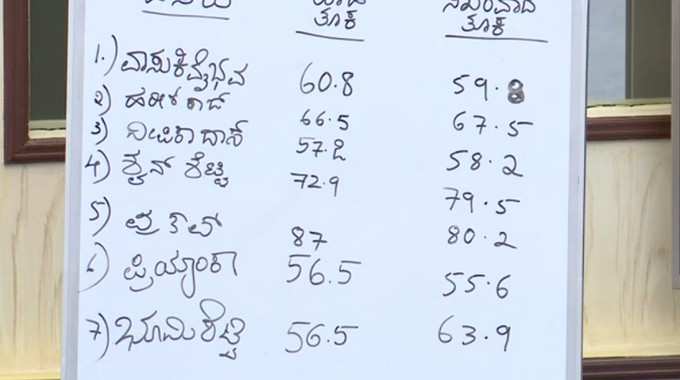 ತೂಕ ತೂಕ
1.) ವಾಸುಕಿ ವೈಭವ 60.8 59.8
2) ಹರೀಶ್ ರಾಜ್ 66.5 67.5
3) ದೀಪಿಕಾ ದಾಸ್ 57.2 58.2
4) ಶೈನ್ ಶೆಟ್ಟಿ 72.9 79.5
5) 87 80.2
6) ಪ್ರಿಯಾಂಕಾ 56.5 55.6
7) ಭೂಮಿ ಶೆಟ್ಟಿ 56.5 63.9